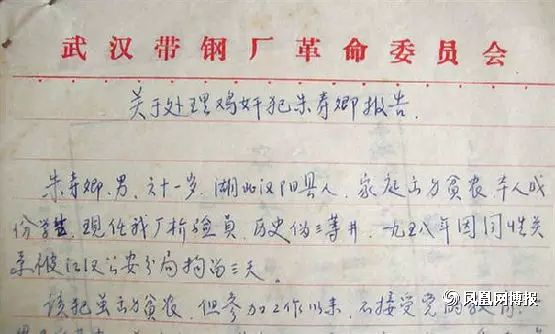 武汉带钢厂革命委员会
关于处理鸡奸犯朱寿卿报告.
朱寿卿、男、六十一岁、湖北汉阳县人，家庭出身贫农，本人成
份学生，现任我厂检验员、历史伪三等井，一九五八年因同性关
系被江汉公安分局拘留三天。
该犯虽出身贫农，但参加工作以来，不接受党的教育
凤凰网博报